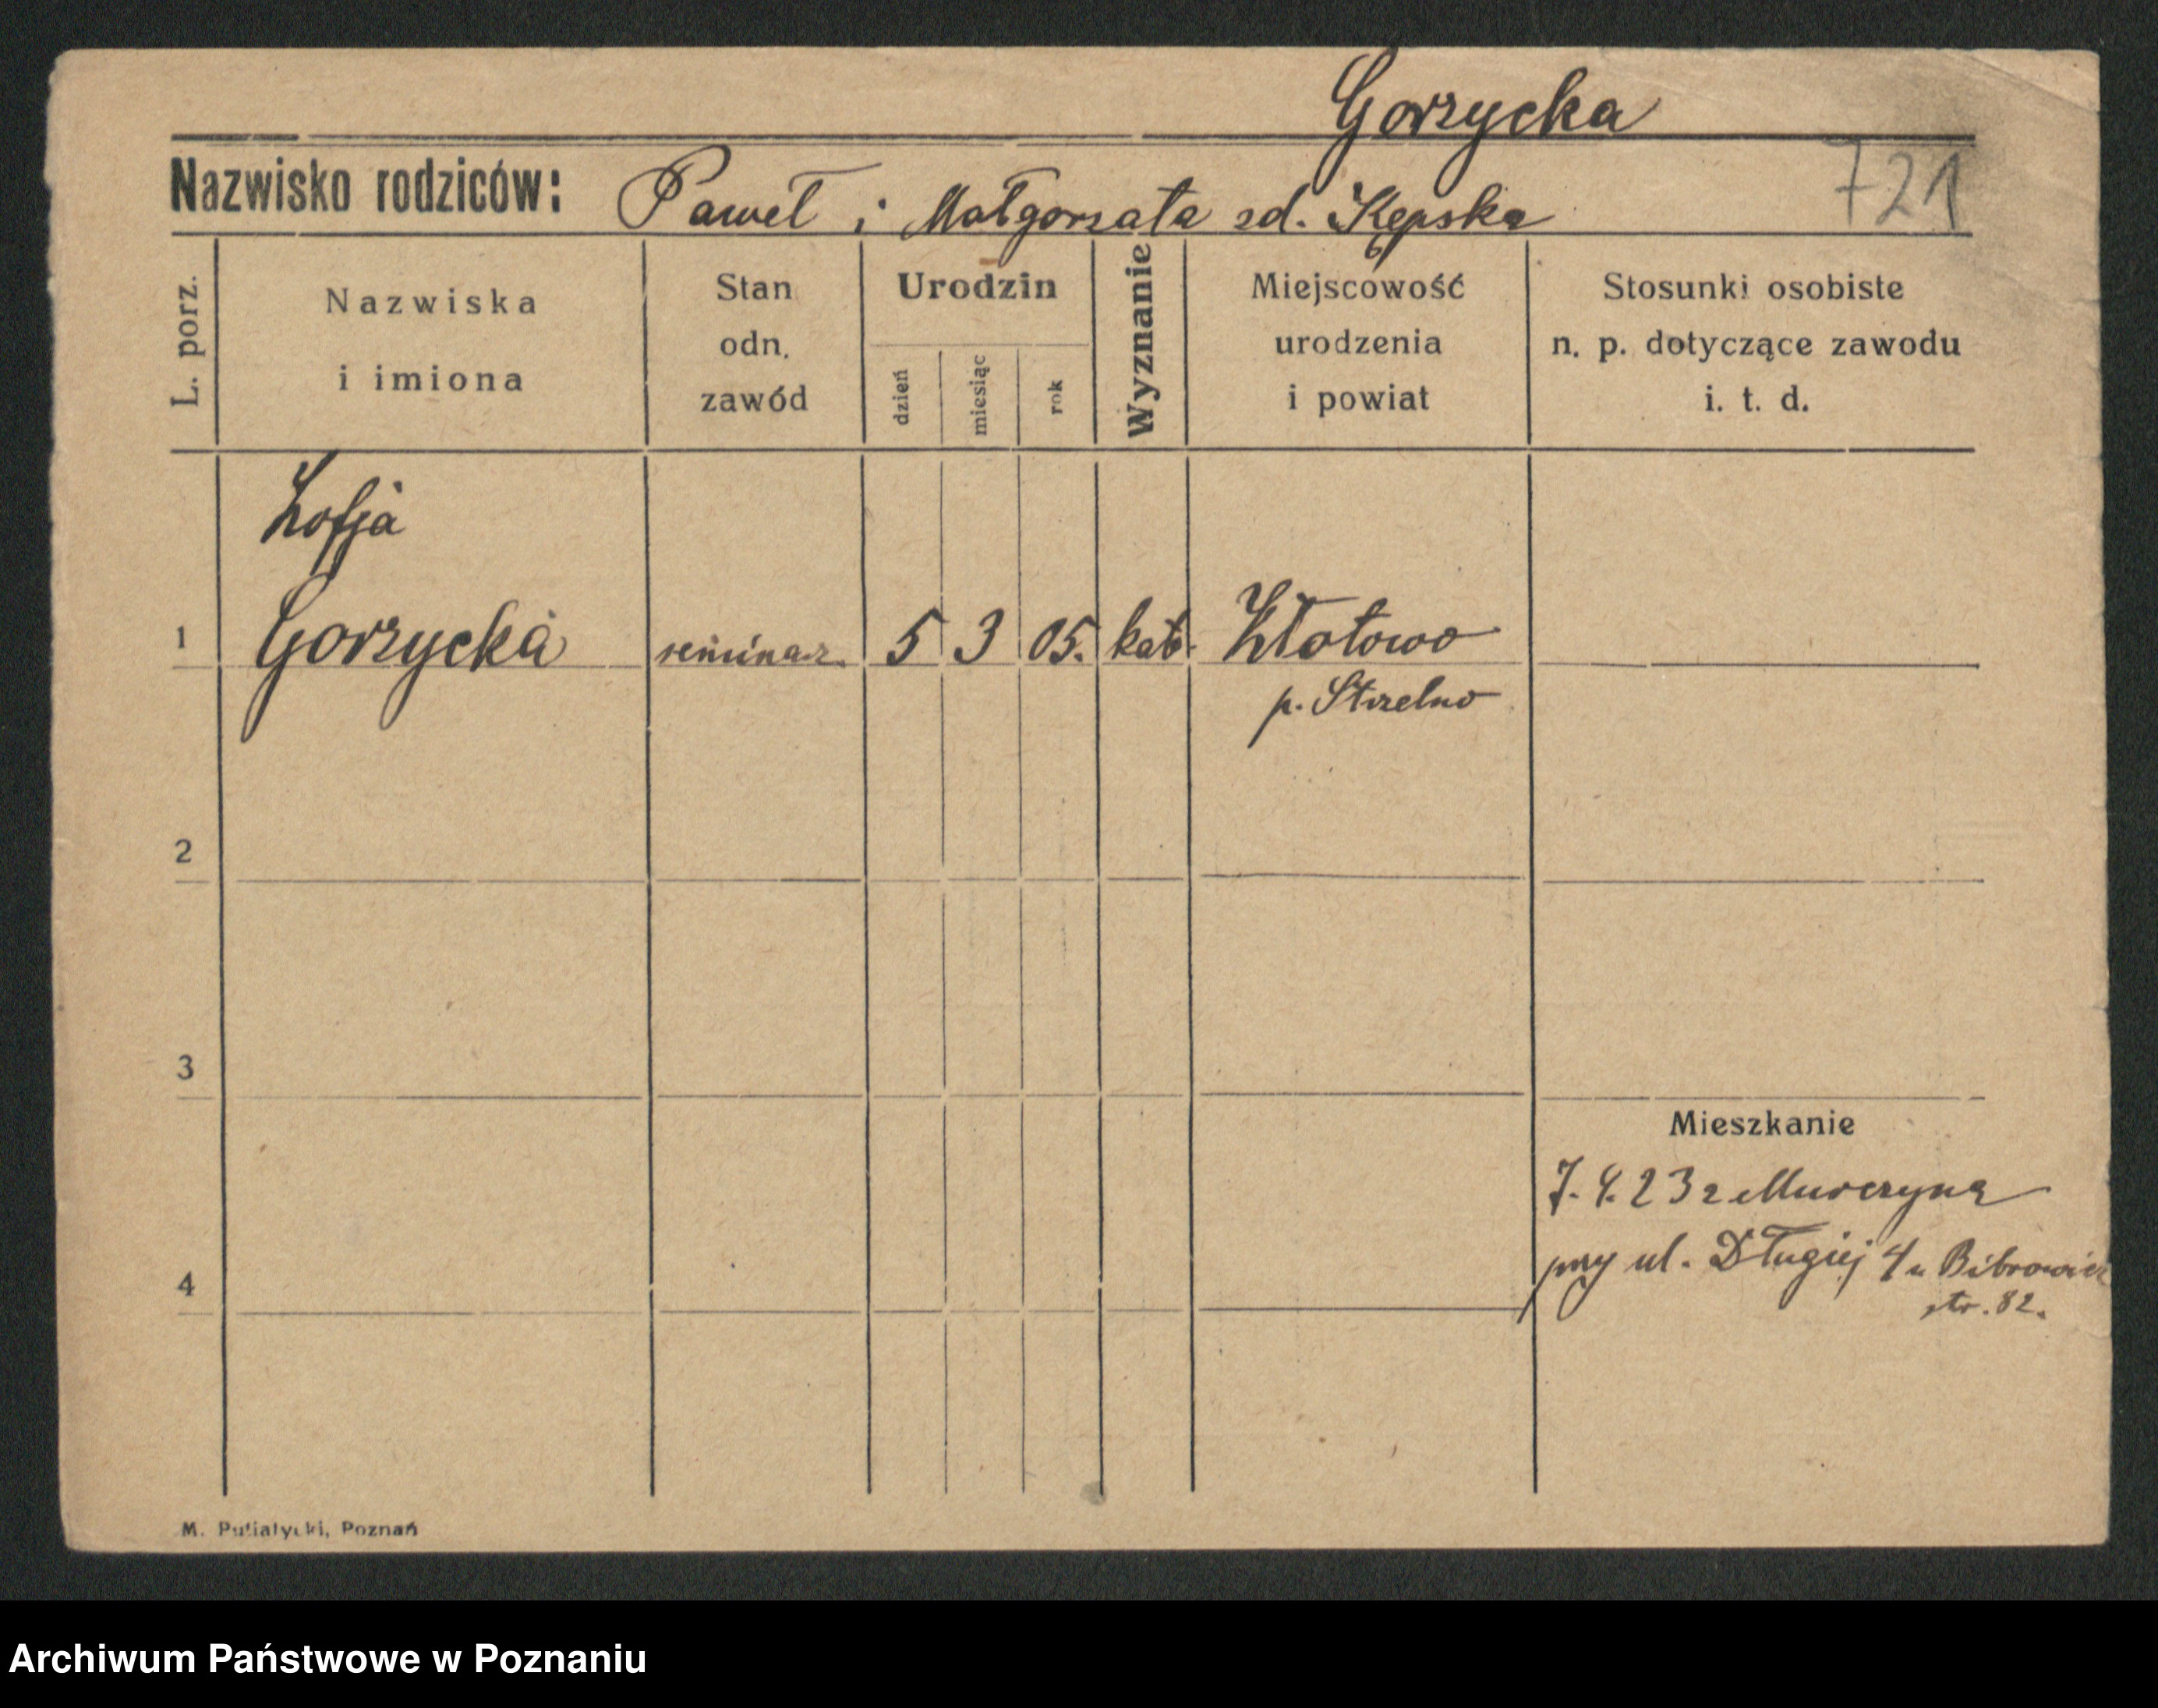 Gorzycka
721
Nazwisko rodziców: Paweł i Małgorzata zd. Kępska
L. porz.
Nazwiska
i imiona
Stan
odn.
zawód
Urodzin
dzień
miesiąc
rok
Wyznanie
Miejscowość
urodzenia
i powiat
Stosunki osobiste
n. p. dotyczące zawodu
i. t. d.
Zofja
1 Gorzycka seminarz. 5 3 05. kat. Złotowo
p. Strzelno
2
3
Mieszkanie
7. 4. 23 z Murczyna
przy ul. Długiej 4 u Bibrowicz
str. 82.
4
M. Putiatycki, Poznań
Archiwum Państwowe w Poznaniu